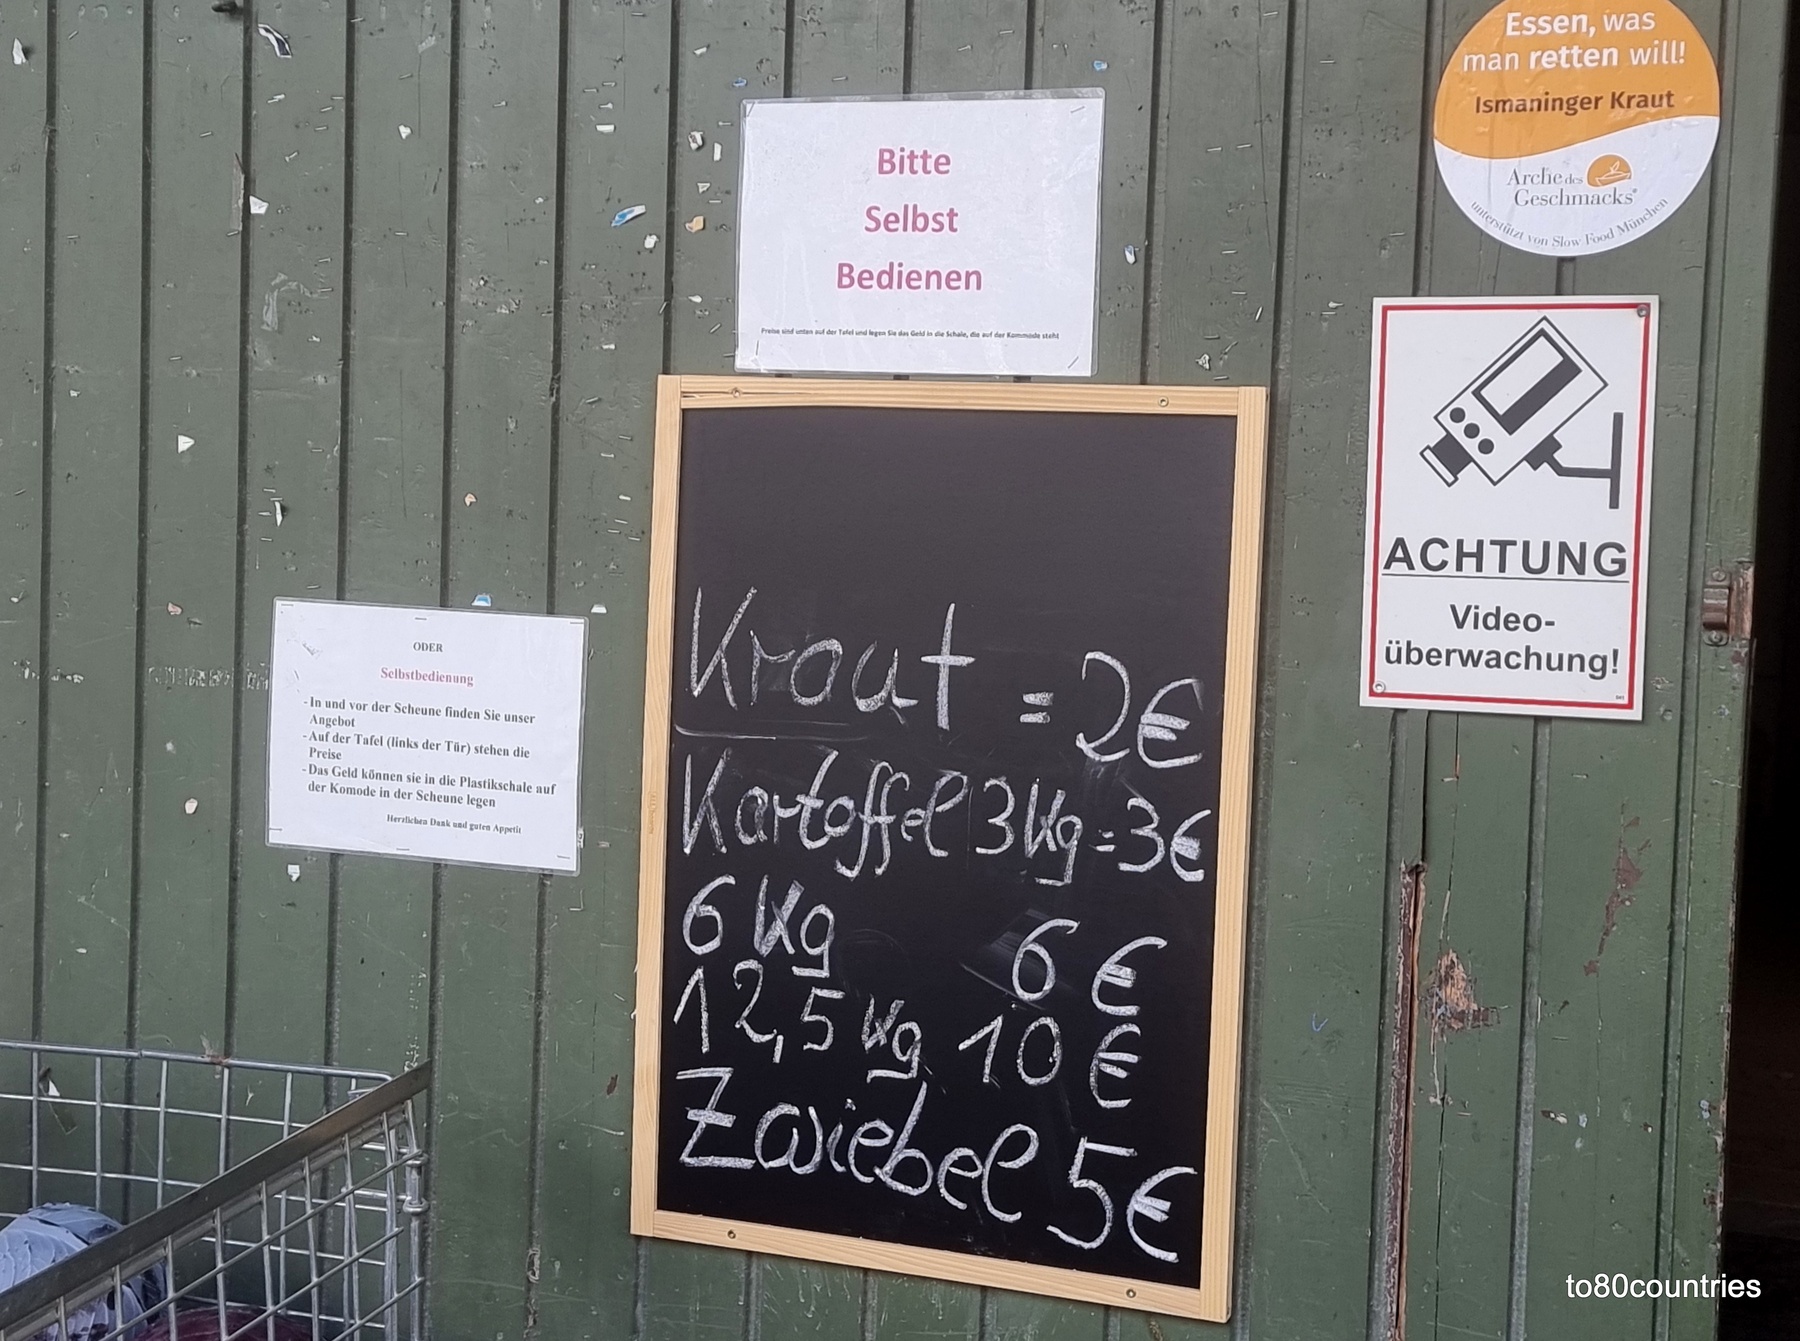 Essen, was
man retten will!
Ismaninger Kraut
Arche des
Geschmacks®
unterstützt von Slow Food München
Bitte
Selbst
Bedienen
Preise sind unten auf der Tafel und legen Sie das Geld in die Schale, die auf der Kommode steht
ACHTUNG
Video-
überwachung!
ODER
Selbstbedienung
- In und vor der Scheune finden Sie unser
Angebot
- Auf der Tafel (links der Tür) stehen die
Preise
- Das Geld können sie in die Plastikschale auf
der Komode in der Scheune legen
Herzlichen Dank und guten Appetit
Kraut = 2€
Kartoffel 3 Kg = 3€
6 Kg 6 €
12,5 Kg 10 €
Zwiebel 5€
to80countries